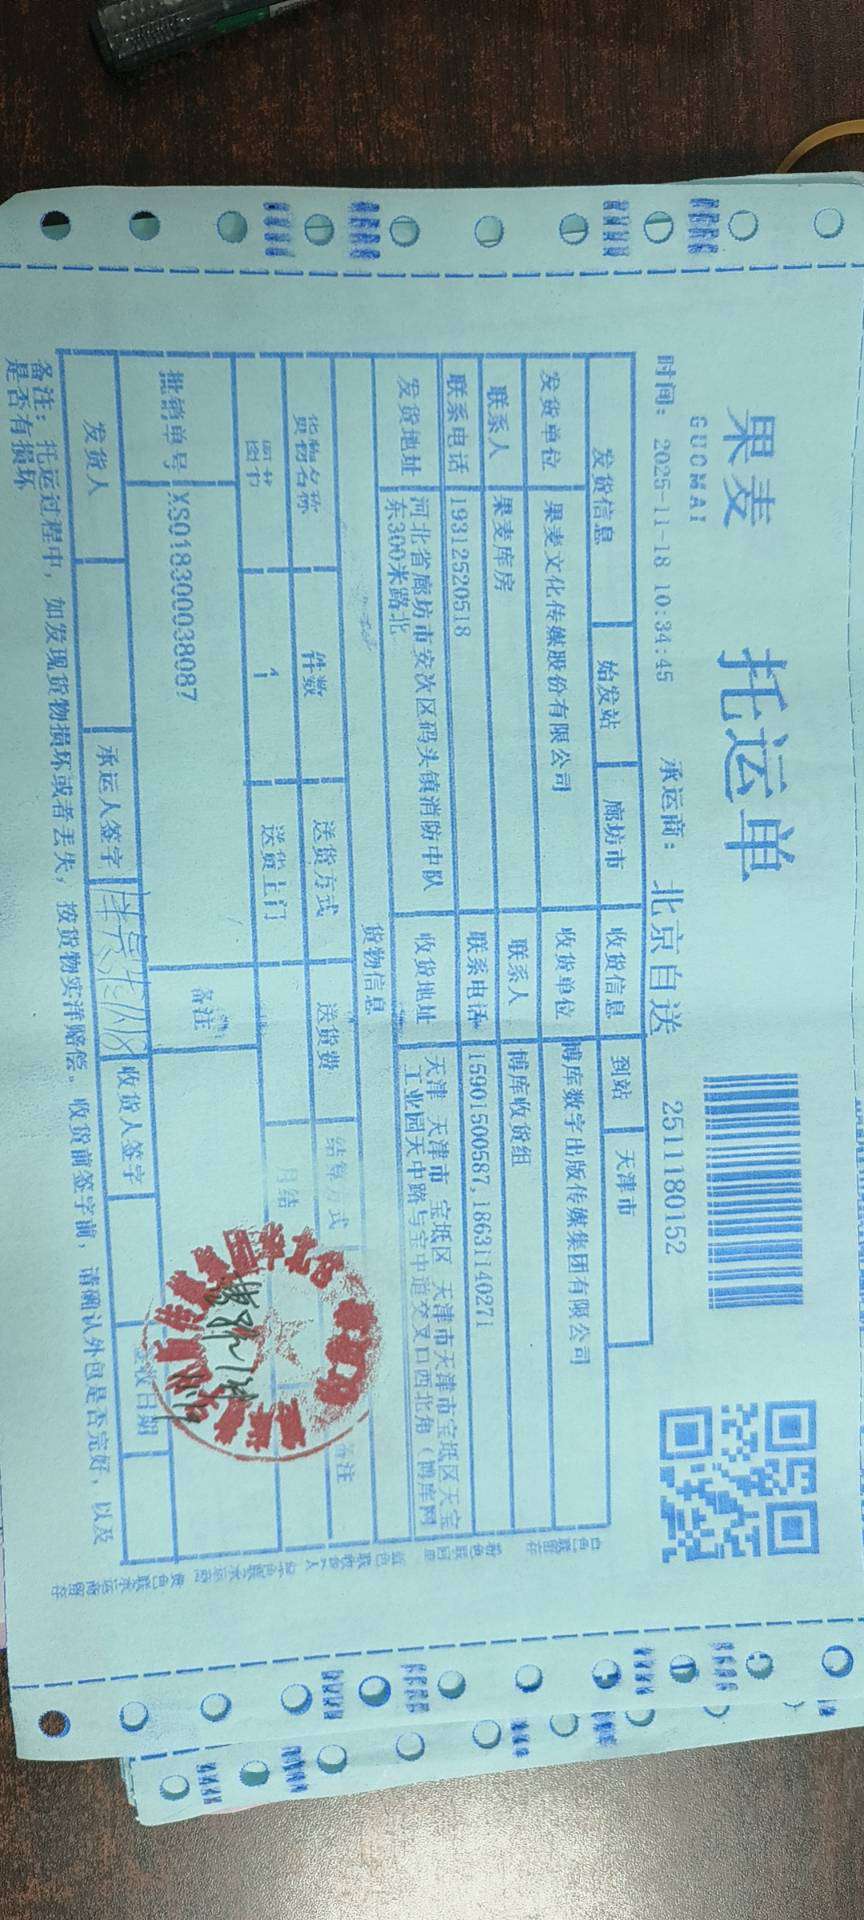 果麦 托运单
GUOMAI
时间: 2025-11-18 10:34:45 承运商: 北京自送 2511180152
发货信息 始发站 廊坊市 收货信息 到站 天津市
发货单位 果麦文化传媒股份有限公司 收货单位 博库数字出版传媒集团有限公司
联系人 果麦库房 联系人 博库收货组
联系电话 19312520518 联系电话 15901500587,18631140271
发货地址 河北省廊坊市安次区码头镇消防中队东300米路北 收货地址 天津 天津市 宝坻区 天津市天津市宝坻区天宝工业园天中路与宝中道交叉口西北角(博库网
货物信息
货物名称 件数 送货方式 送货费 结算方式 备注
图书 1 送货上门 月结
批销单号 XS018300038087 备注
发货人 承运人签字 收货人签字 签收日期
备注: 托运过程中, 如发现货物损坏或者丢失, 按货物实洋赔偿。收货前签字前, 请确认外包是否完好, 以及
是否有损坏